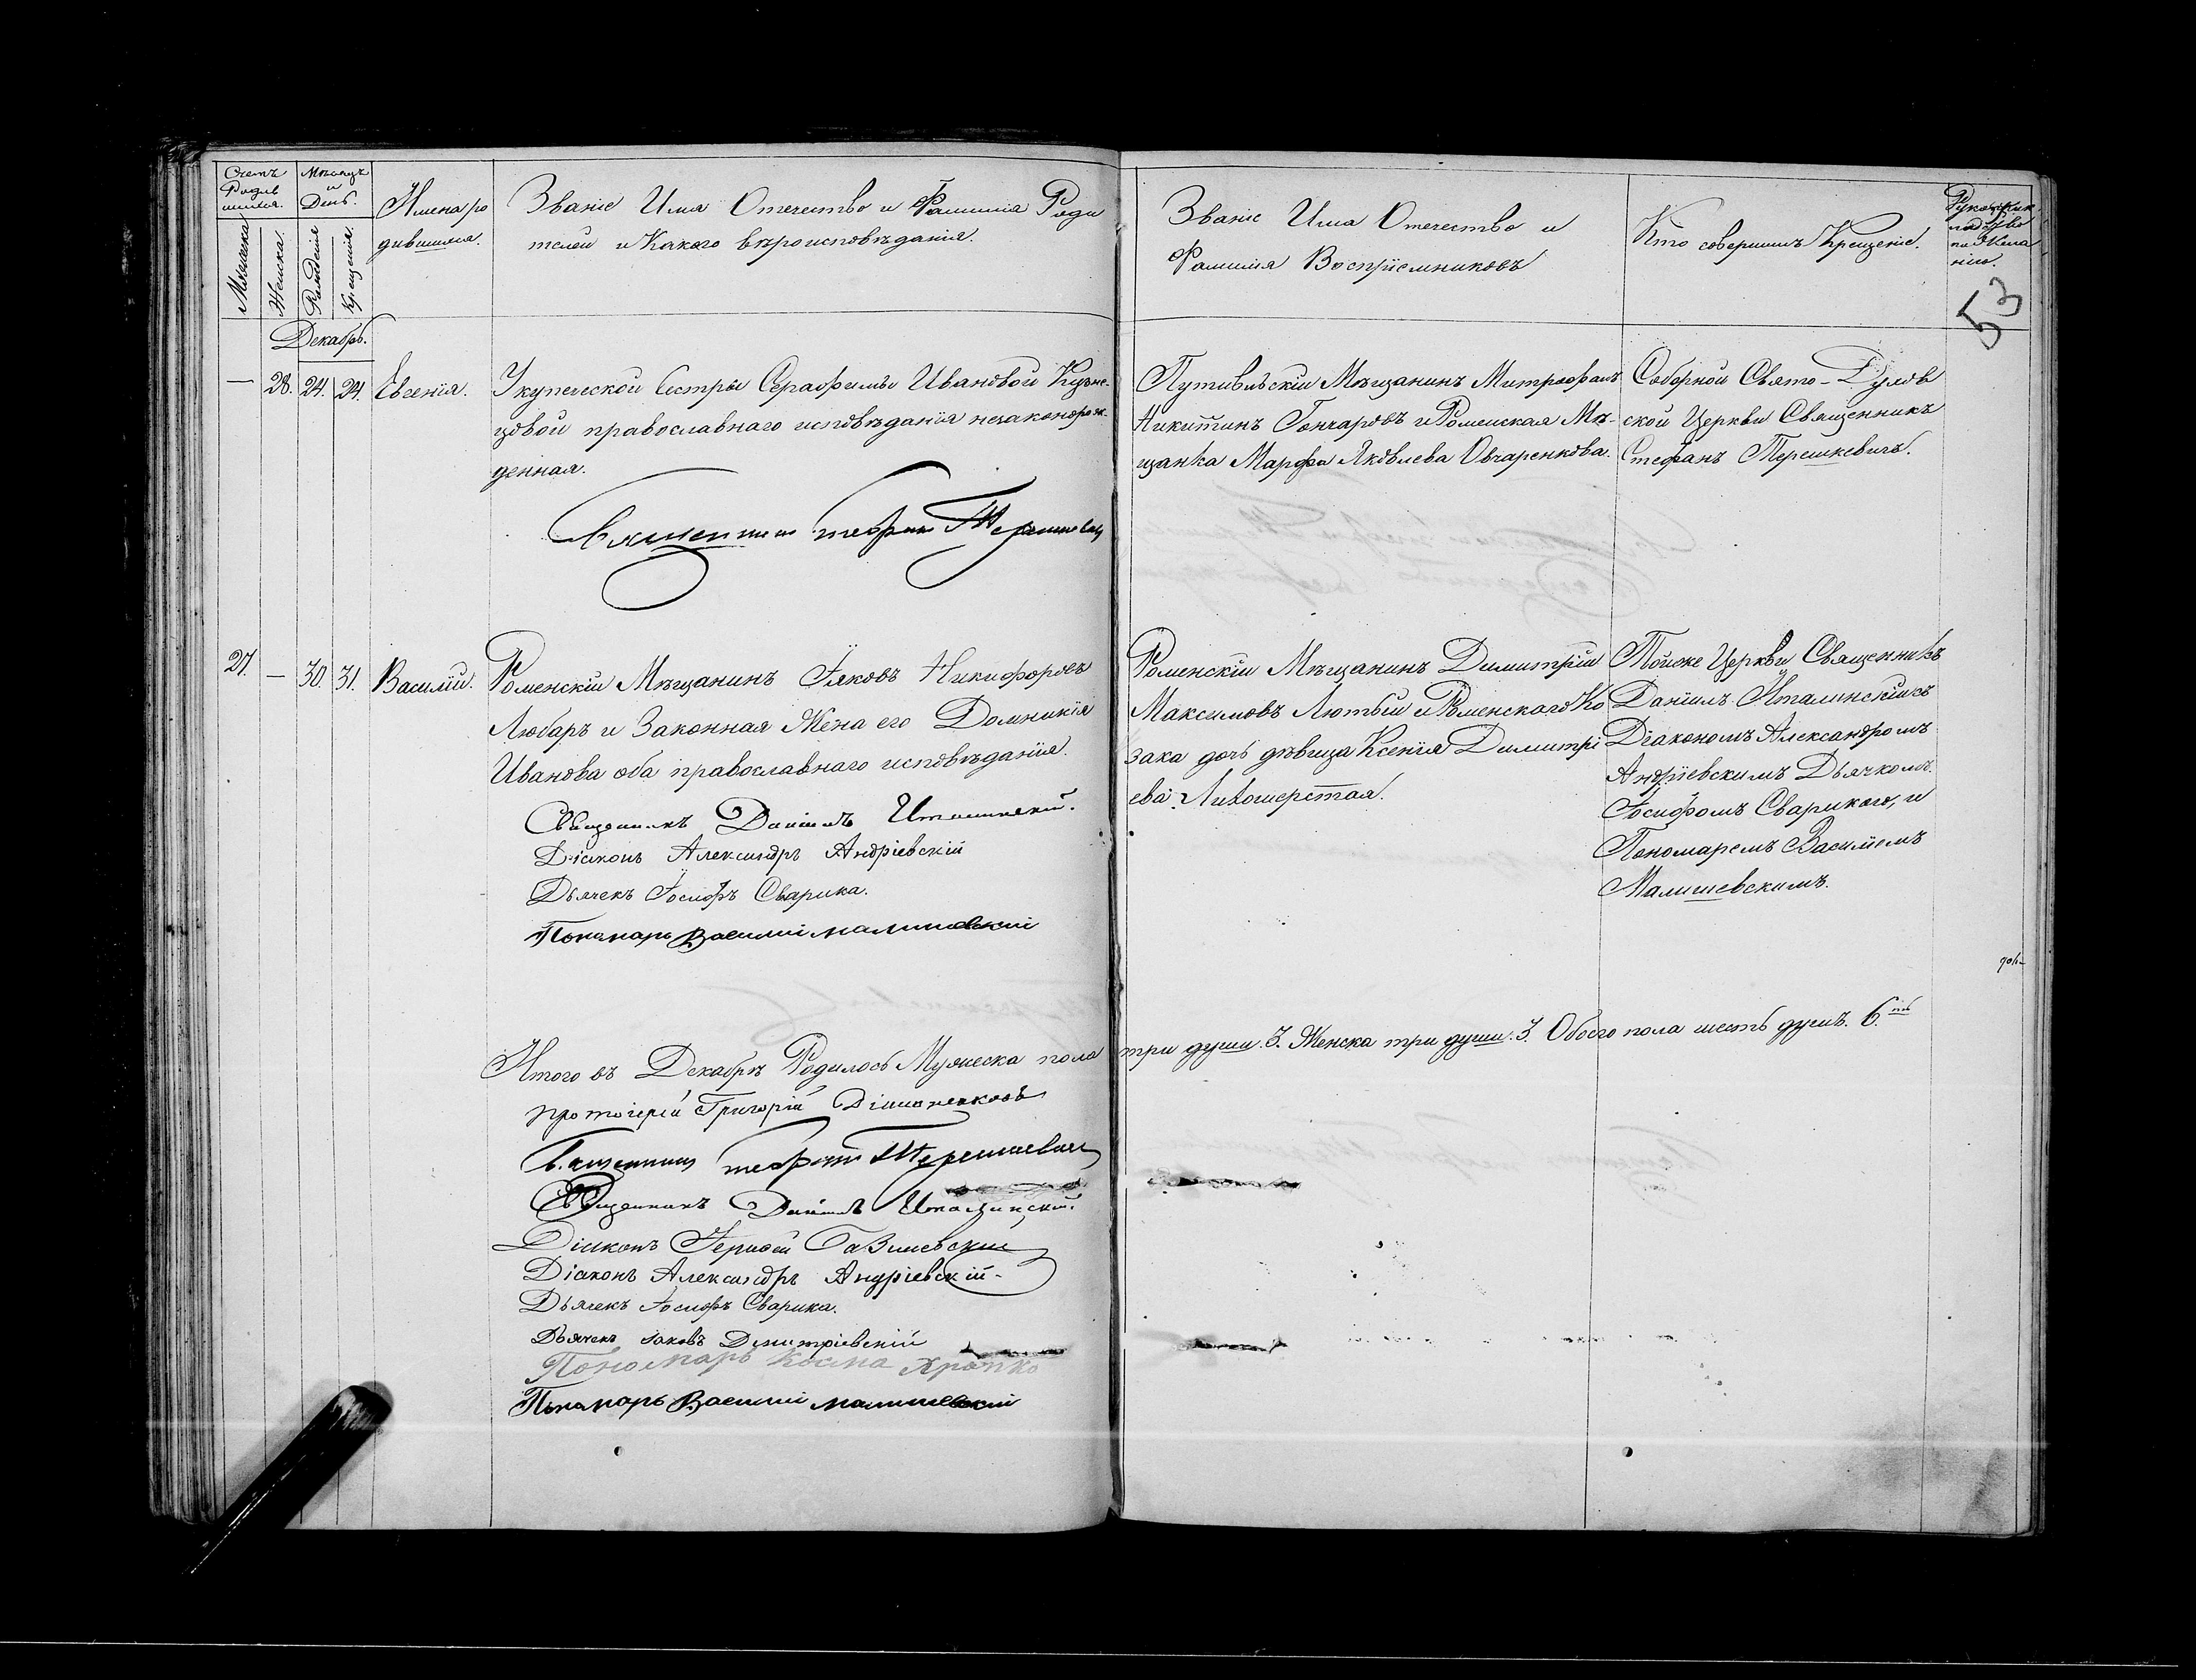 Счетъ Родив
шихся.
Мѣсяцъ
и
День.
Мужеска
Женска.
Рожденія
Крещенія.
Имена ро
дившихся.
Званіе Имя Отечество и Фамилія Роди
телей и Какого вѣроисповѣданія.
Званіе Има Отечество и
Фамилія Воспріемниковъ
Кто совершилъ Крещеніе.
53
Декабрь.
— 28. 24. 24. Евгенія.
У купеческой Сестры Серафимы Ивановой Кузне-
цовой православнаго исповѣданія незаконорож-
денная.
Священник Стефан Терешкевич
Путивльскій Мѣщанинъ Митрофанъ
Никитинъ Гончаровъ и Роменская Мѣ-
щанка Марфа Яковлева Овчаренкова.
Соборной Свято-Духов
ской Церкви Священникъ
Стефанъ Терешкевичъ.
27. — 30. 31. Василій.
Роменскій Мѣщанинъ Іяковъ Никифоровъ
Любаръ и Законная Жена его Домникія
Иванова оба православнаго исповѣданія.
Священникъ Даніилъ Италинскій.
Діаконъ Александръ Андріевскій
Дьячекъ Іосифъ Сварика.
Понамарь Василій Малишевский
Роменскій Мѣщанинъ Димитрій
Максимовъ Лютый и Роменскаго Ко
зака дочь дѣвица Ксенія Димитрі
ева Лихошерстая.
Тойже Церкви Священникъ
Даніилъ Италинскій съ
Діакономъ Александромъ
Андріевскимъ Дьячкомъ
Іосифомъ Сварикою, и
Пономаремъ Василіемъ
Малишевскимъ.
Итого въ Декабрѣ Родилось Мужеска пола три души. 3. Женска три души. 3. Обоего пола шесть душъ. 6.
Протоіерей Григорій
Священник Стефан Терешкевич
Священникъ Даніилъ Италинскій.
Діаконъ
Діаконъ Александръ Андріевскій
Дьячекъ Іосифъ Сварика.
Дьячекъ Іаковъ Димитріевскій
Пономарь Косма Храпко
Понамарь Василій Малишевский